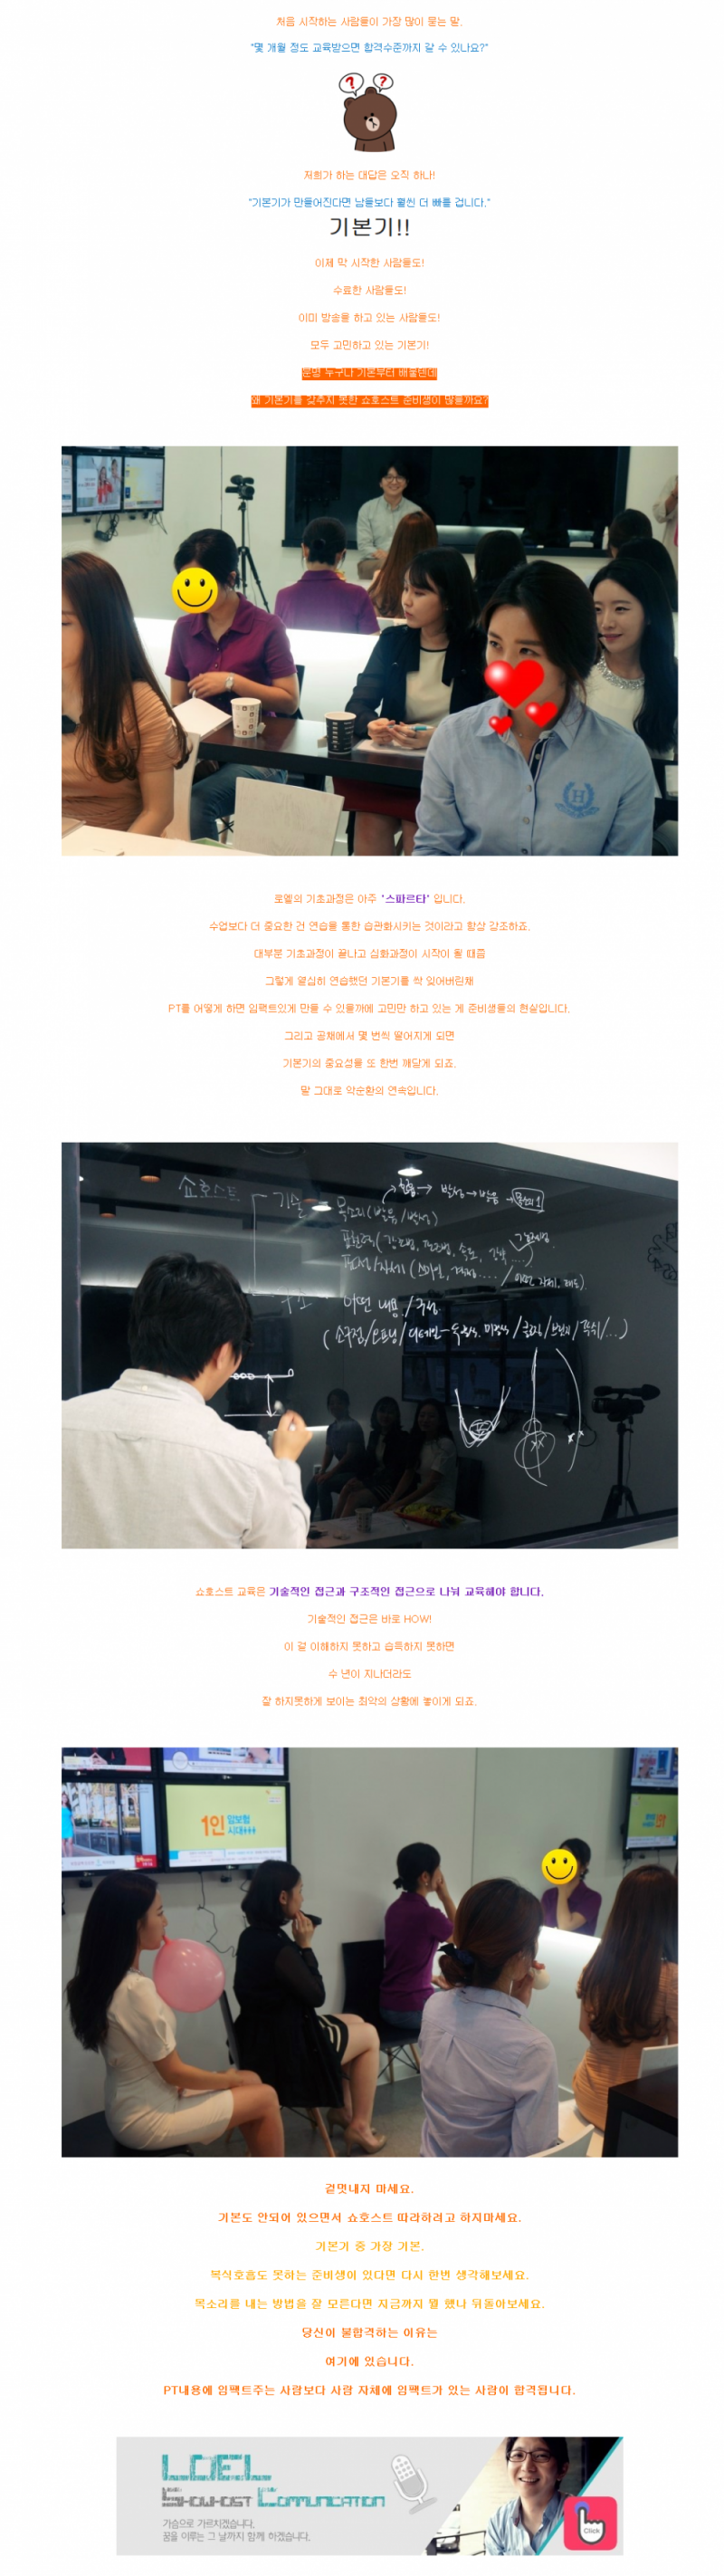 처음 시작하는 사람들이 가장 많이 묻는 말.
"몇 개월 정도 교육받으면 합격수준까지 갈 수 있나요?"
? ?
저희가 하는 대답은 오직 하나!
"기본기가 만들어진다면 남들보다 훨씬 더 빠를 겁니다."
기본기!!
이제 막 시작한 사람들도!
수료한 사람들도!
이미 방송을 하고 있는 사람들도!
모두 고민하고 있는 기본기!
분명 누구나 기본부터 배울텐데
왜 기본기를 갖추지 못한 쇼호스트 준비생이 많을까요?
H
로엘의 기초과정은 아주 '스파르타' 입니다.
수업보다 더 중요한 건 연습을 통한 습관화시키는 것이라고 항상 강조하죠.
대부분 기초과정이 끝나고 심화과정이 시작이 될 때쯤
그렇게 열심히 연습했던 기본기를 싹 잊어버린채
PT를 어떻게 하면 임팩트있게 만들 수 있을까에 고민만 하고 있는 게 준비생들의 현실입니다.
그리고 공채에서 몇 번씩 떨어지게 되면
기본기의 중요성을 또 한번 깨닫게 되죠.
말 그대로 악순환의 연속입니다.
쇼호스트 기술 목소리(발음/발성) 호흡→발성→발음→
표현력(강조법, 속도,
표정/자세(
구조 어떤 내용/구성
(소구점/오프닝/디테일
쇼호스트 교육은 기술적인 접근과 구조적인 접근으로 나눠 교육해야 합니다.
기술적인 접근은 바로 HOW!
이 걸 이해하지 못하고 습득하지 못하면
수 년이 지나더라도
잘 하지못하게 보이는 최악의 상황에 놓이게 되죠.
1인 암보험
시대
겉멋내지 마세요.
기본도 안되어 있으면서 쇼호스트 따라하려고 하지마세요.
기본기 중 가장 기본.
복식호흡도 못하는 준비생이 있다면 다시 한번 생각해보세요.
목소리를 내는 방법을 잘 모른다면 지금까지 뭘 했나 뒤돌아보세요.
당신이 불합격하는 이유는
여기에 있습니다.
PT내용에 임팩트주는 사람보다 사람 자체에 임팩트가 있는 사람이 합격됩니다.
LOEL
THE SHOWHOST COMMUNICATION
가슴으로 가르치겠습니다.
꿈을 이루는 그 날까지 함께 하겠습니다.
Click